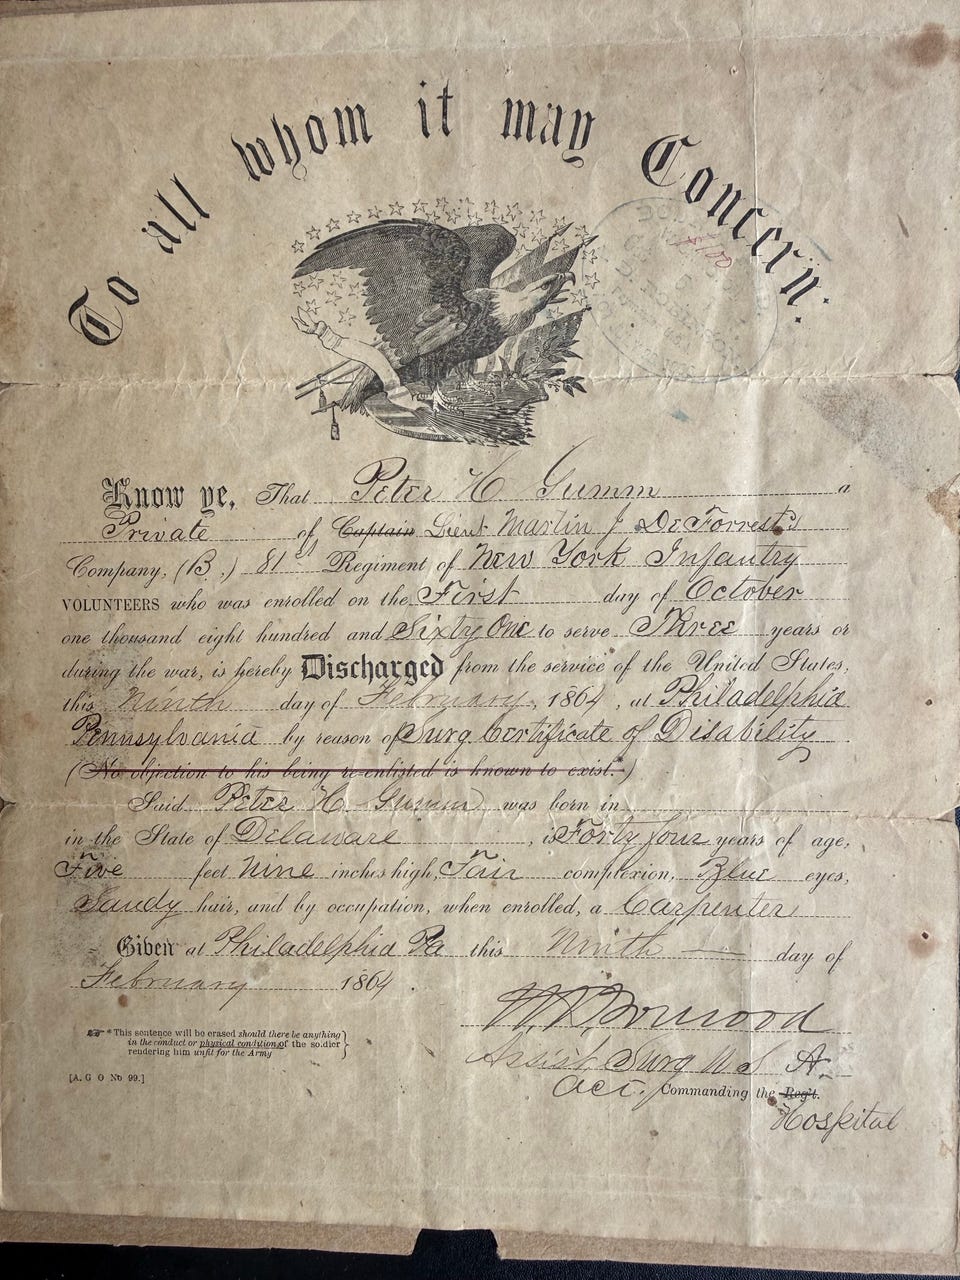 To all whom it may Concern.
$100
Know ye, That Peter H Gumm a
Private of Captain Lieut Martin J DeForrest's
Company, (B,) 81st Regiment of New York Infantry
VOLUNTEERS who was enrolled on the First day of October
one thousand eight hundred and Sixty One to serve Three years or
during the war, is hereby Discharged from the service of the United States,
this Ninth day of February, 1864, at Philadelphia
Pennsylvania by reason of Surg Certificate of Disability
(No objection to his being re-enlisted is known to exist.*)
Said Peter H. Gumm was born in
in the State of Delaware, is Forty four years of age,
Five feet Nine inches high, Fair complexion, Blue eyes,
Sandy hair, and by occupation, when enrolled, a Carpenter
Given at Philadelphia Pa this Ninth — day of
February 1864.
Assist Surg U S A.
Act. Commanding the Reg't.
Hospital
* This sentence will be erased should there be anything
in the conduct or physical condition of the soldier
rendering him unfit for the Army
[A. G. O No 99.]